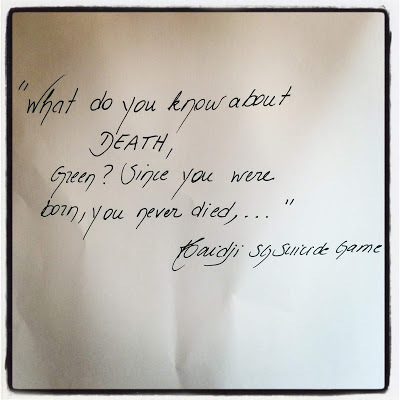 "What do you know about
DEATH,
Green? Since you were
born, you never died,..."
Haidji SG Suicide Game